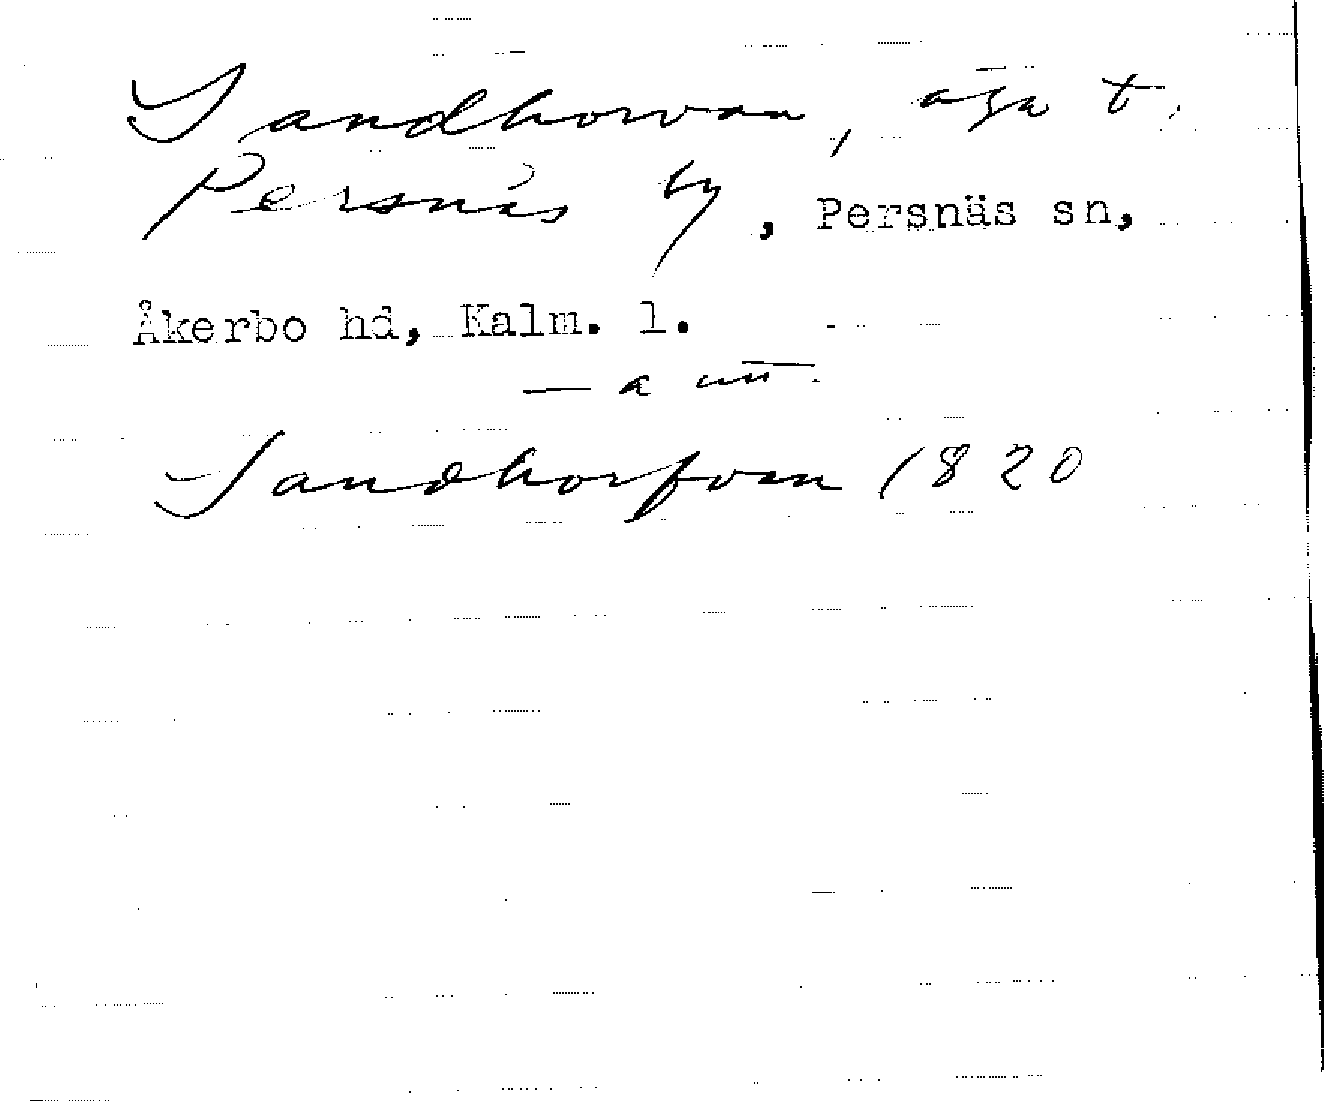 Sandhorvan, äga t.
Persnäs by, Persnäs sn,
Åkerbo hd, Kalm. l.
— a
Sandhorfvan 1820